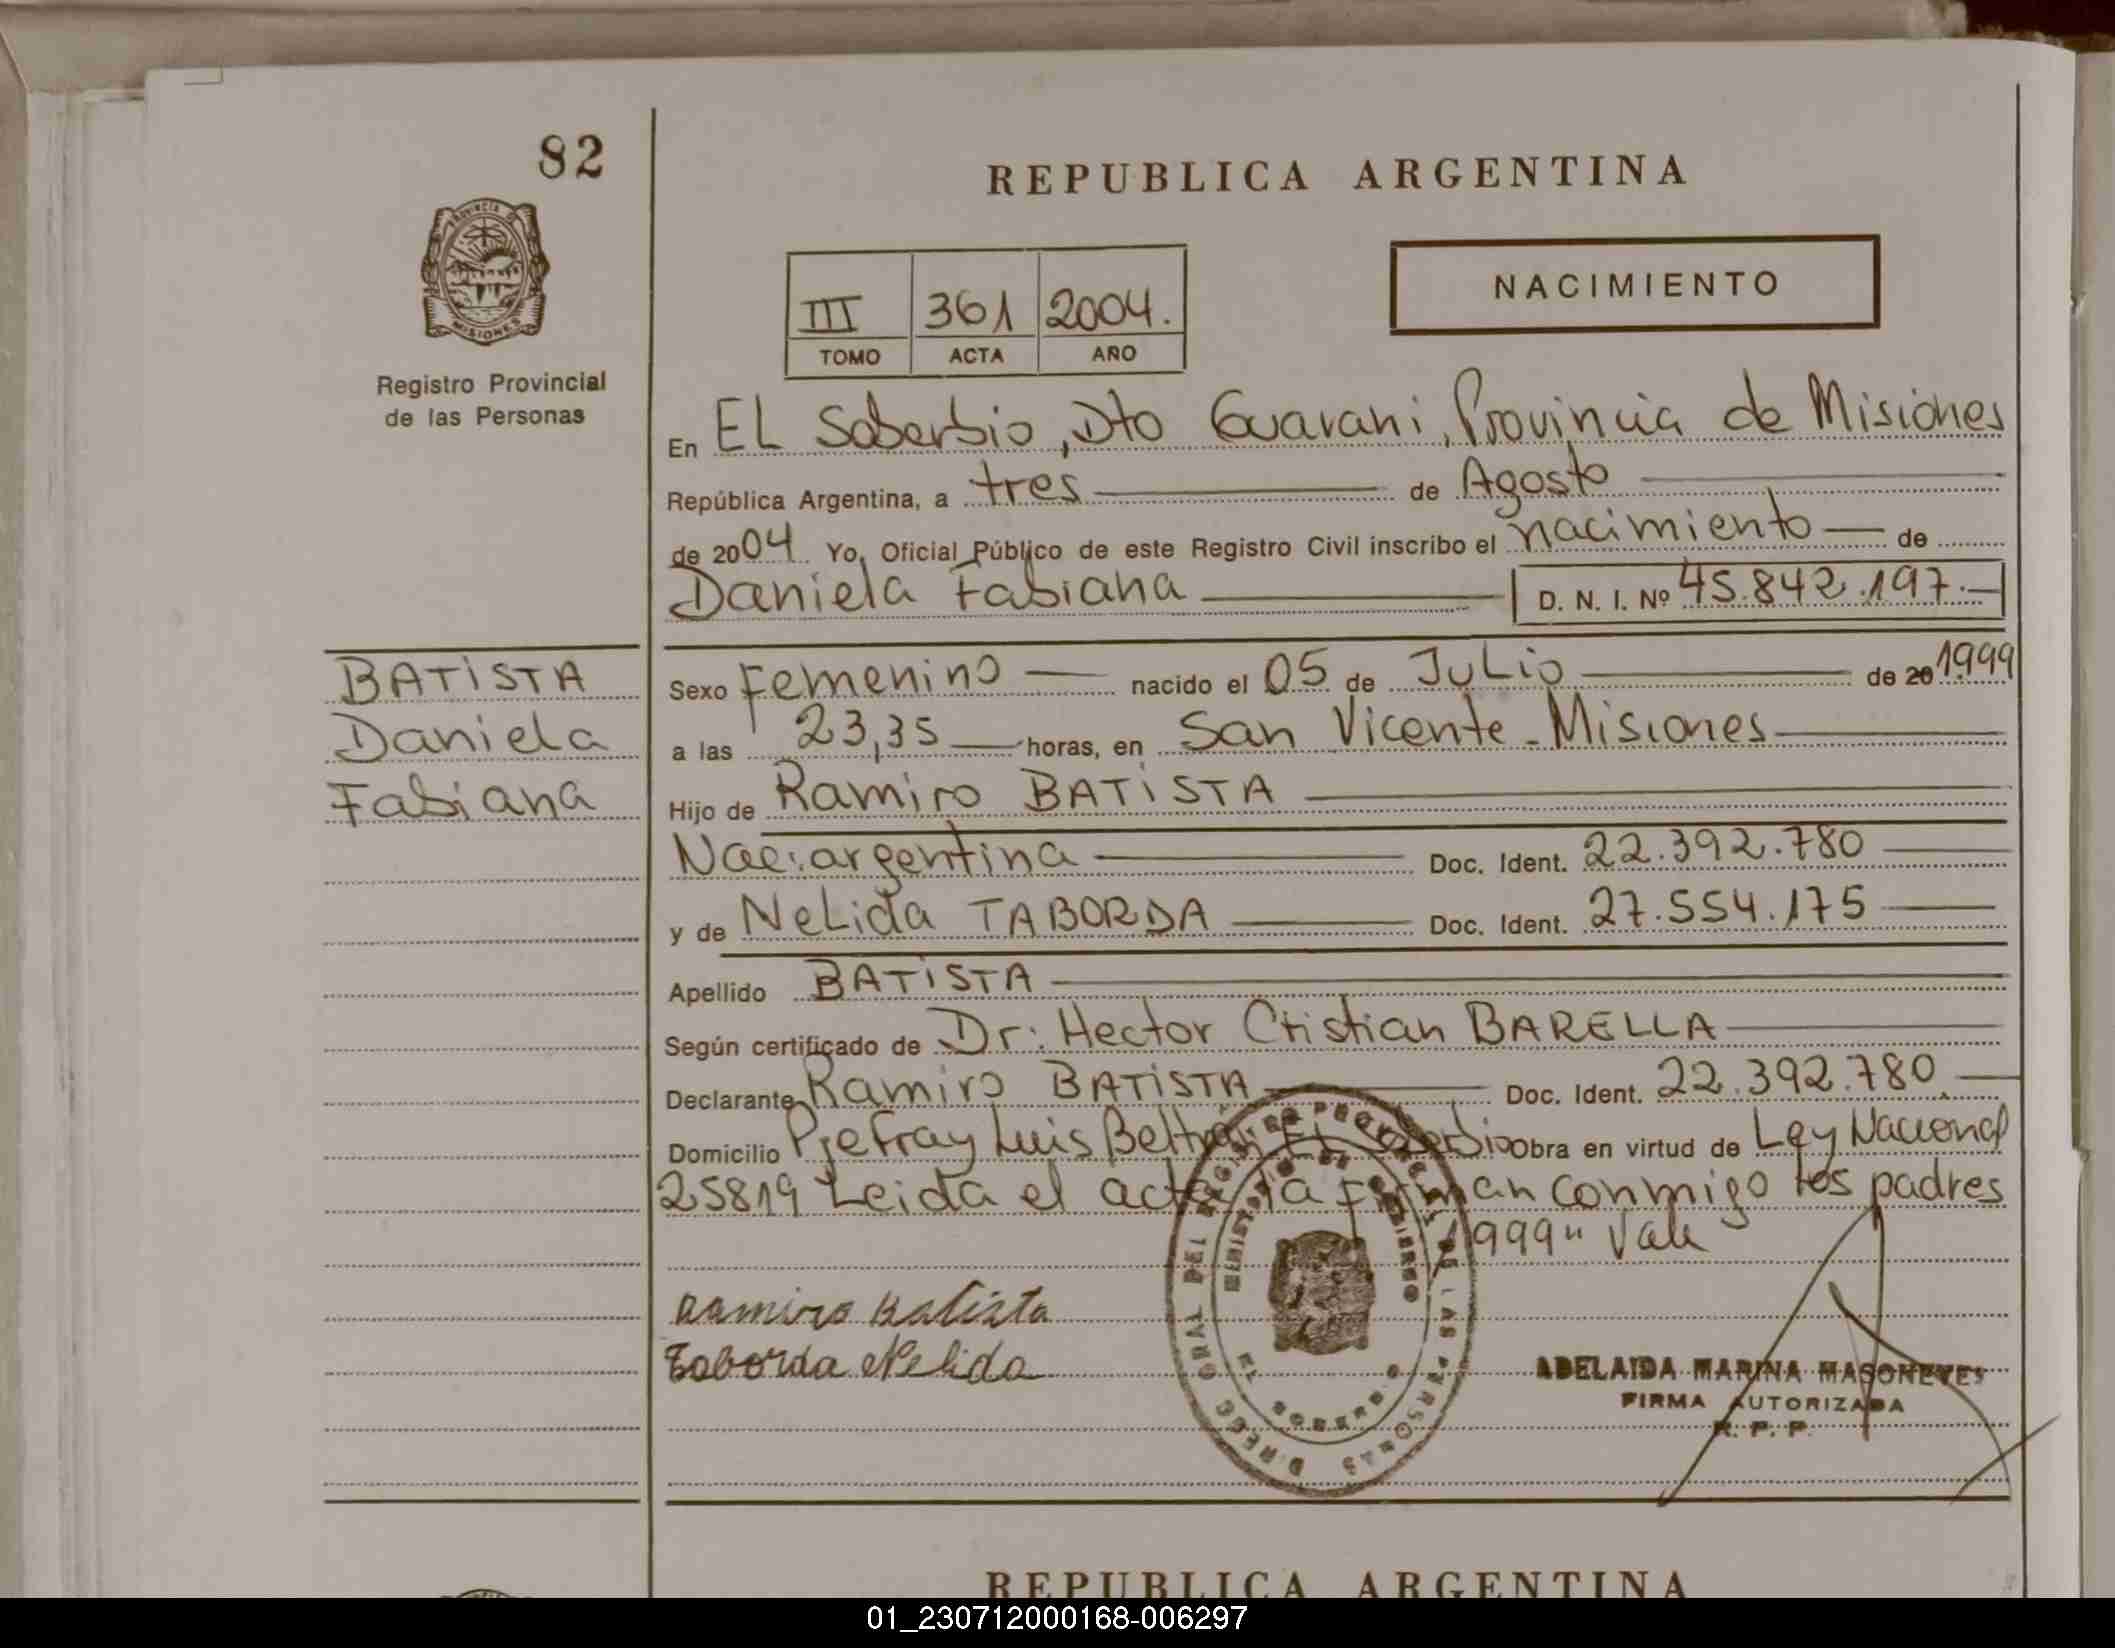 82
REPUBLICA ARGENTINA
NACIMIENTO
III 361 2004.
TOMO ACTA AÑO
PROVINCIA DE
MISIONES
Registro Provincial
de las Personas
En EL Soberbio, Dto Guarani, Provincia de Misiones
República Argentina, a tres de Agosto
de 2004 Yo, Oficial Público de este Registro Civil inscribo el nacimiento de
Daniela Fabiana D. N. I. Nº 45.842.197.-
BATISTA
Daniela
Fabiana
Sexo Femenino nacido el 05 de JuLio de 20 1999
a las 23,35 horas, en San Vicente - Misiones
Hijo de Ramiro BATISTA
Nac: argentina Doc. Ident. 22.392.780
y de NeLida TABORDA Doc. Ident. 27.554.175
Apellido BATISTA
Según certificado de Dr: Hector Cristian BARELLA
Declarante Ramiro BATISTA Doc. Ident. 22.392.780
Domicilio Pje Fray Luis Beltrán EL Soberbio Obra en virtud de Ley Nacional
25819 Leida el acta la firman conmigo los padres
1999" Vale
Ramiro Batista
Taborda Nelida
DIRECC GRAL DEL REGISTRO PROVINCIAL DE LAS PERSONAS
MINISTERIO DE GOBIERNO
EL SOBERBIO
ADELAIDA MARINA MASONEVES
FIRMA AUTORIZADA
R. P. P.
REPUBLICA ARGENTINA
01_230712000168-006297